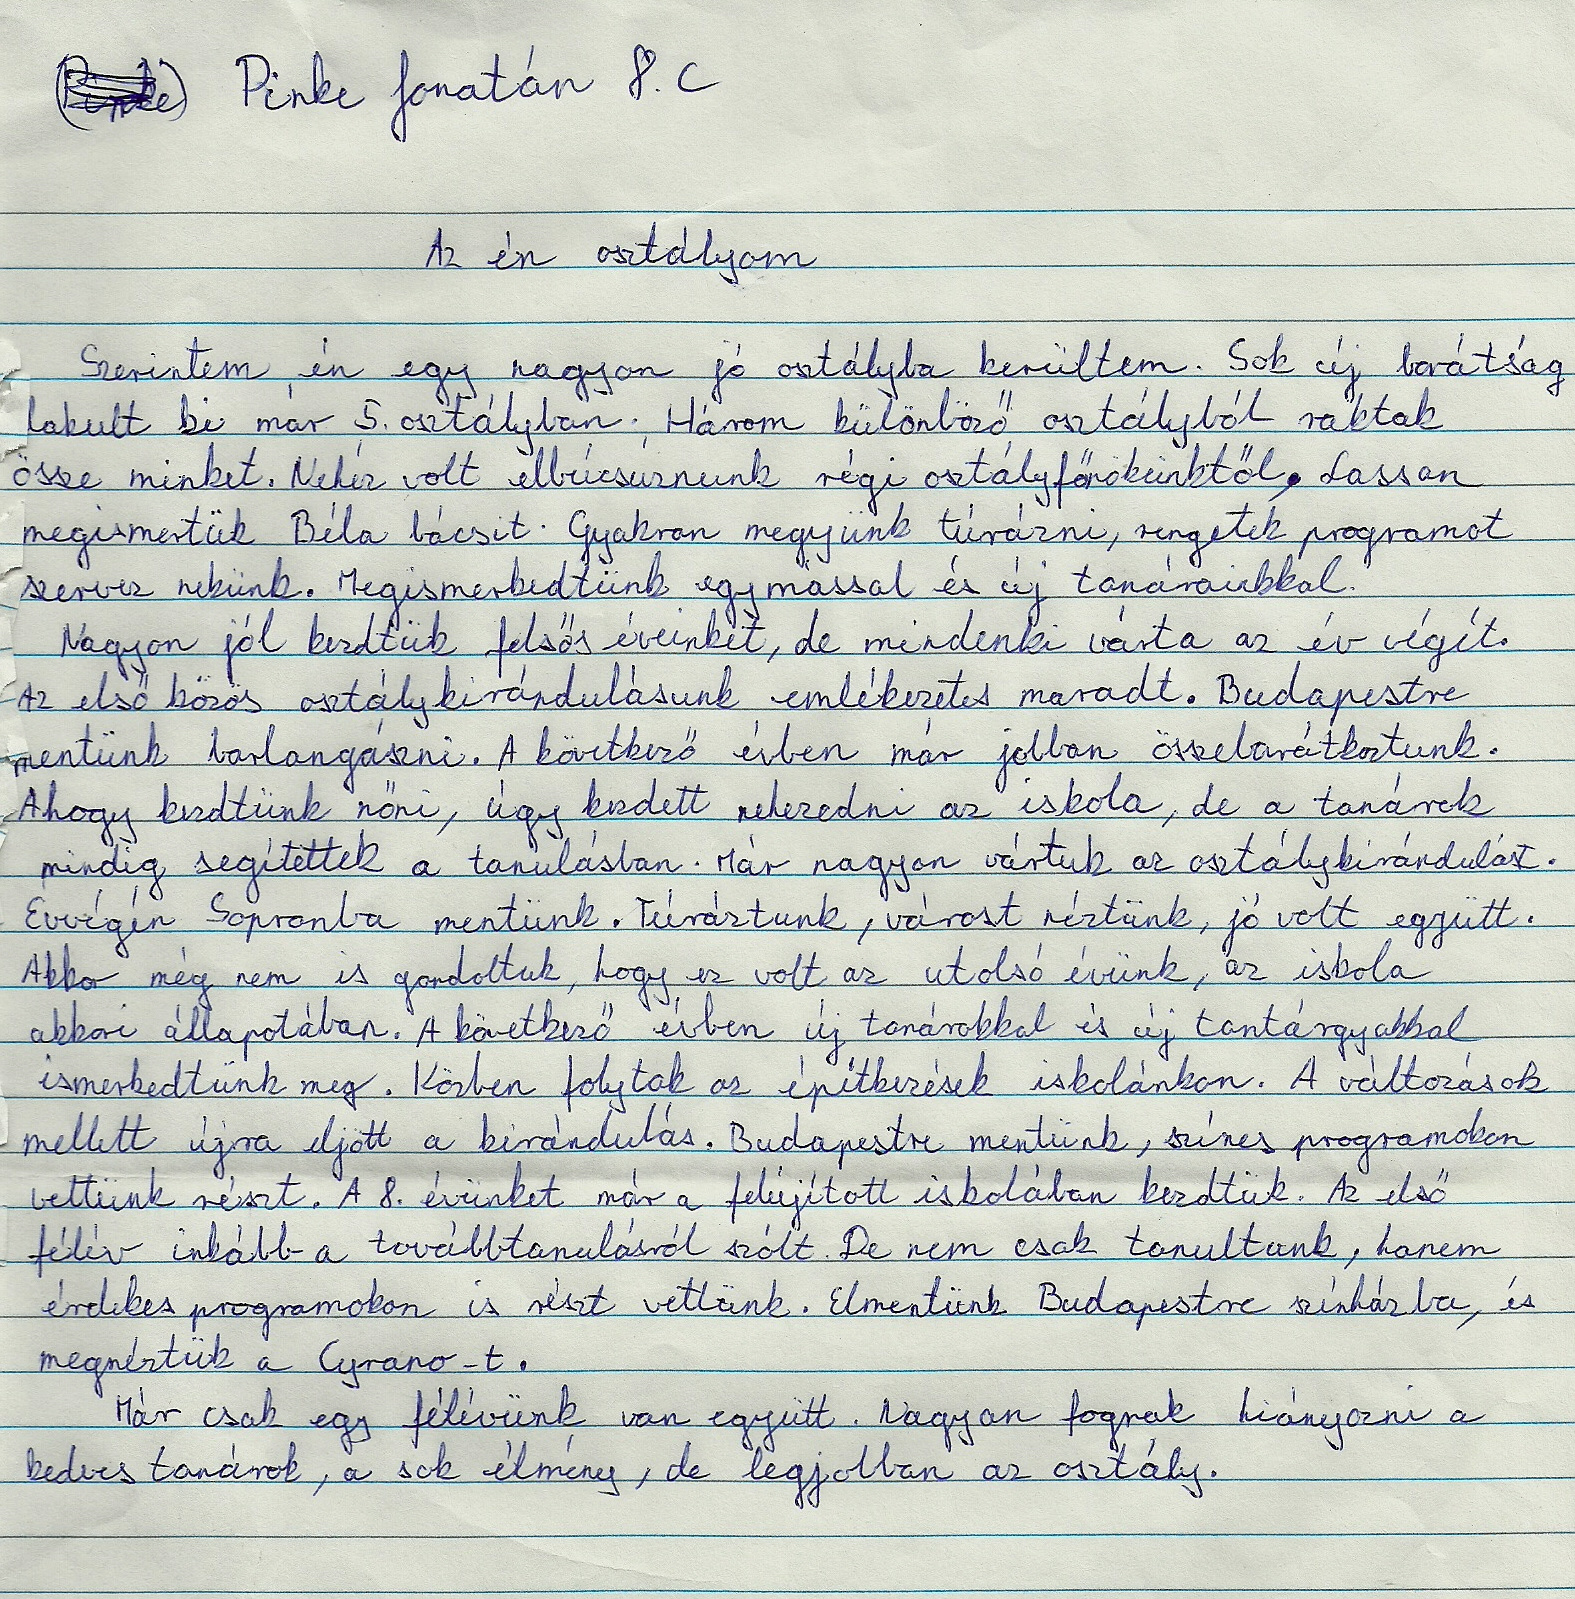 (Pinke) Pinke Jonatán 8. C
Az én osztályom
Szerintem én egy nagyon jó osztályba kerültem. Sok új barátság
lakult ki már 5. osztályban. Három különböző osztályból raktak
össze minket. Nehéz volt elbúcsúznunk régi osztályfőnökeinktől. Lassan
megismertük Béla bácsit. Gyakran megyünk túrázni, rengetek programot
szervez nekünk. Megismerkedtünk egymással és új tanárainkkal.
Nagyon jól kezdtük felsős éveinket, de mindenki várta az év végét.
Az első közös osztálykirándulásunk emlékezetes maradt. Budapestre
mentünk barlangászni. A következő évben már jobban összebarátkoztunk.
Ahogy kezdtünk nőni, úgy kezdett nehezedni az iskola, de a tanárok
mindig segítettek a tanulásban. Már nagyon vártuk az osztálykirándulást.
Évvégén Sopronba mentünk. Túráztunk, várost néztünk, jó volt együtt.
Akkor még nem is gondoltuk, hogy ez volt az utolsó évünk, az iskola
akkori állapotában. A következő évben új tanárokkal és új tantárgyakkal
ismerkedtünk meg. Közben folytak az építkezések iskolánkon. A változások
mellett újra eljött a kirándulás. Budapestre mentünk, színes programokon
vettünk részt. A 8. évünket már a felújított iskolában kezdtük. Az első
félév inkább a továbbtanulásról szólt. De nem csak tanultunk, hanem
érdekes programokon is részt vettünk. Elmentünk Budapestre színházba, és
megnéztük a Cyrano-t.
Már csak egy félévünk van együtt. Nagyon fognak hiányozni a
kedves tanárok, a sok élmény, de legjobban az osztály.